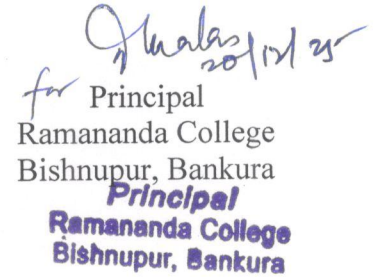 20/12/25
for Principal
Ramananda College
Bishnupur, Bankura
Principal
Ramananda College
Bishnupur, Bankura